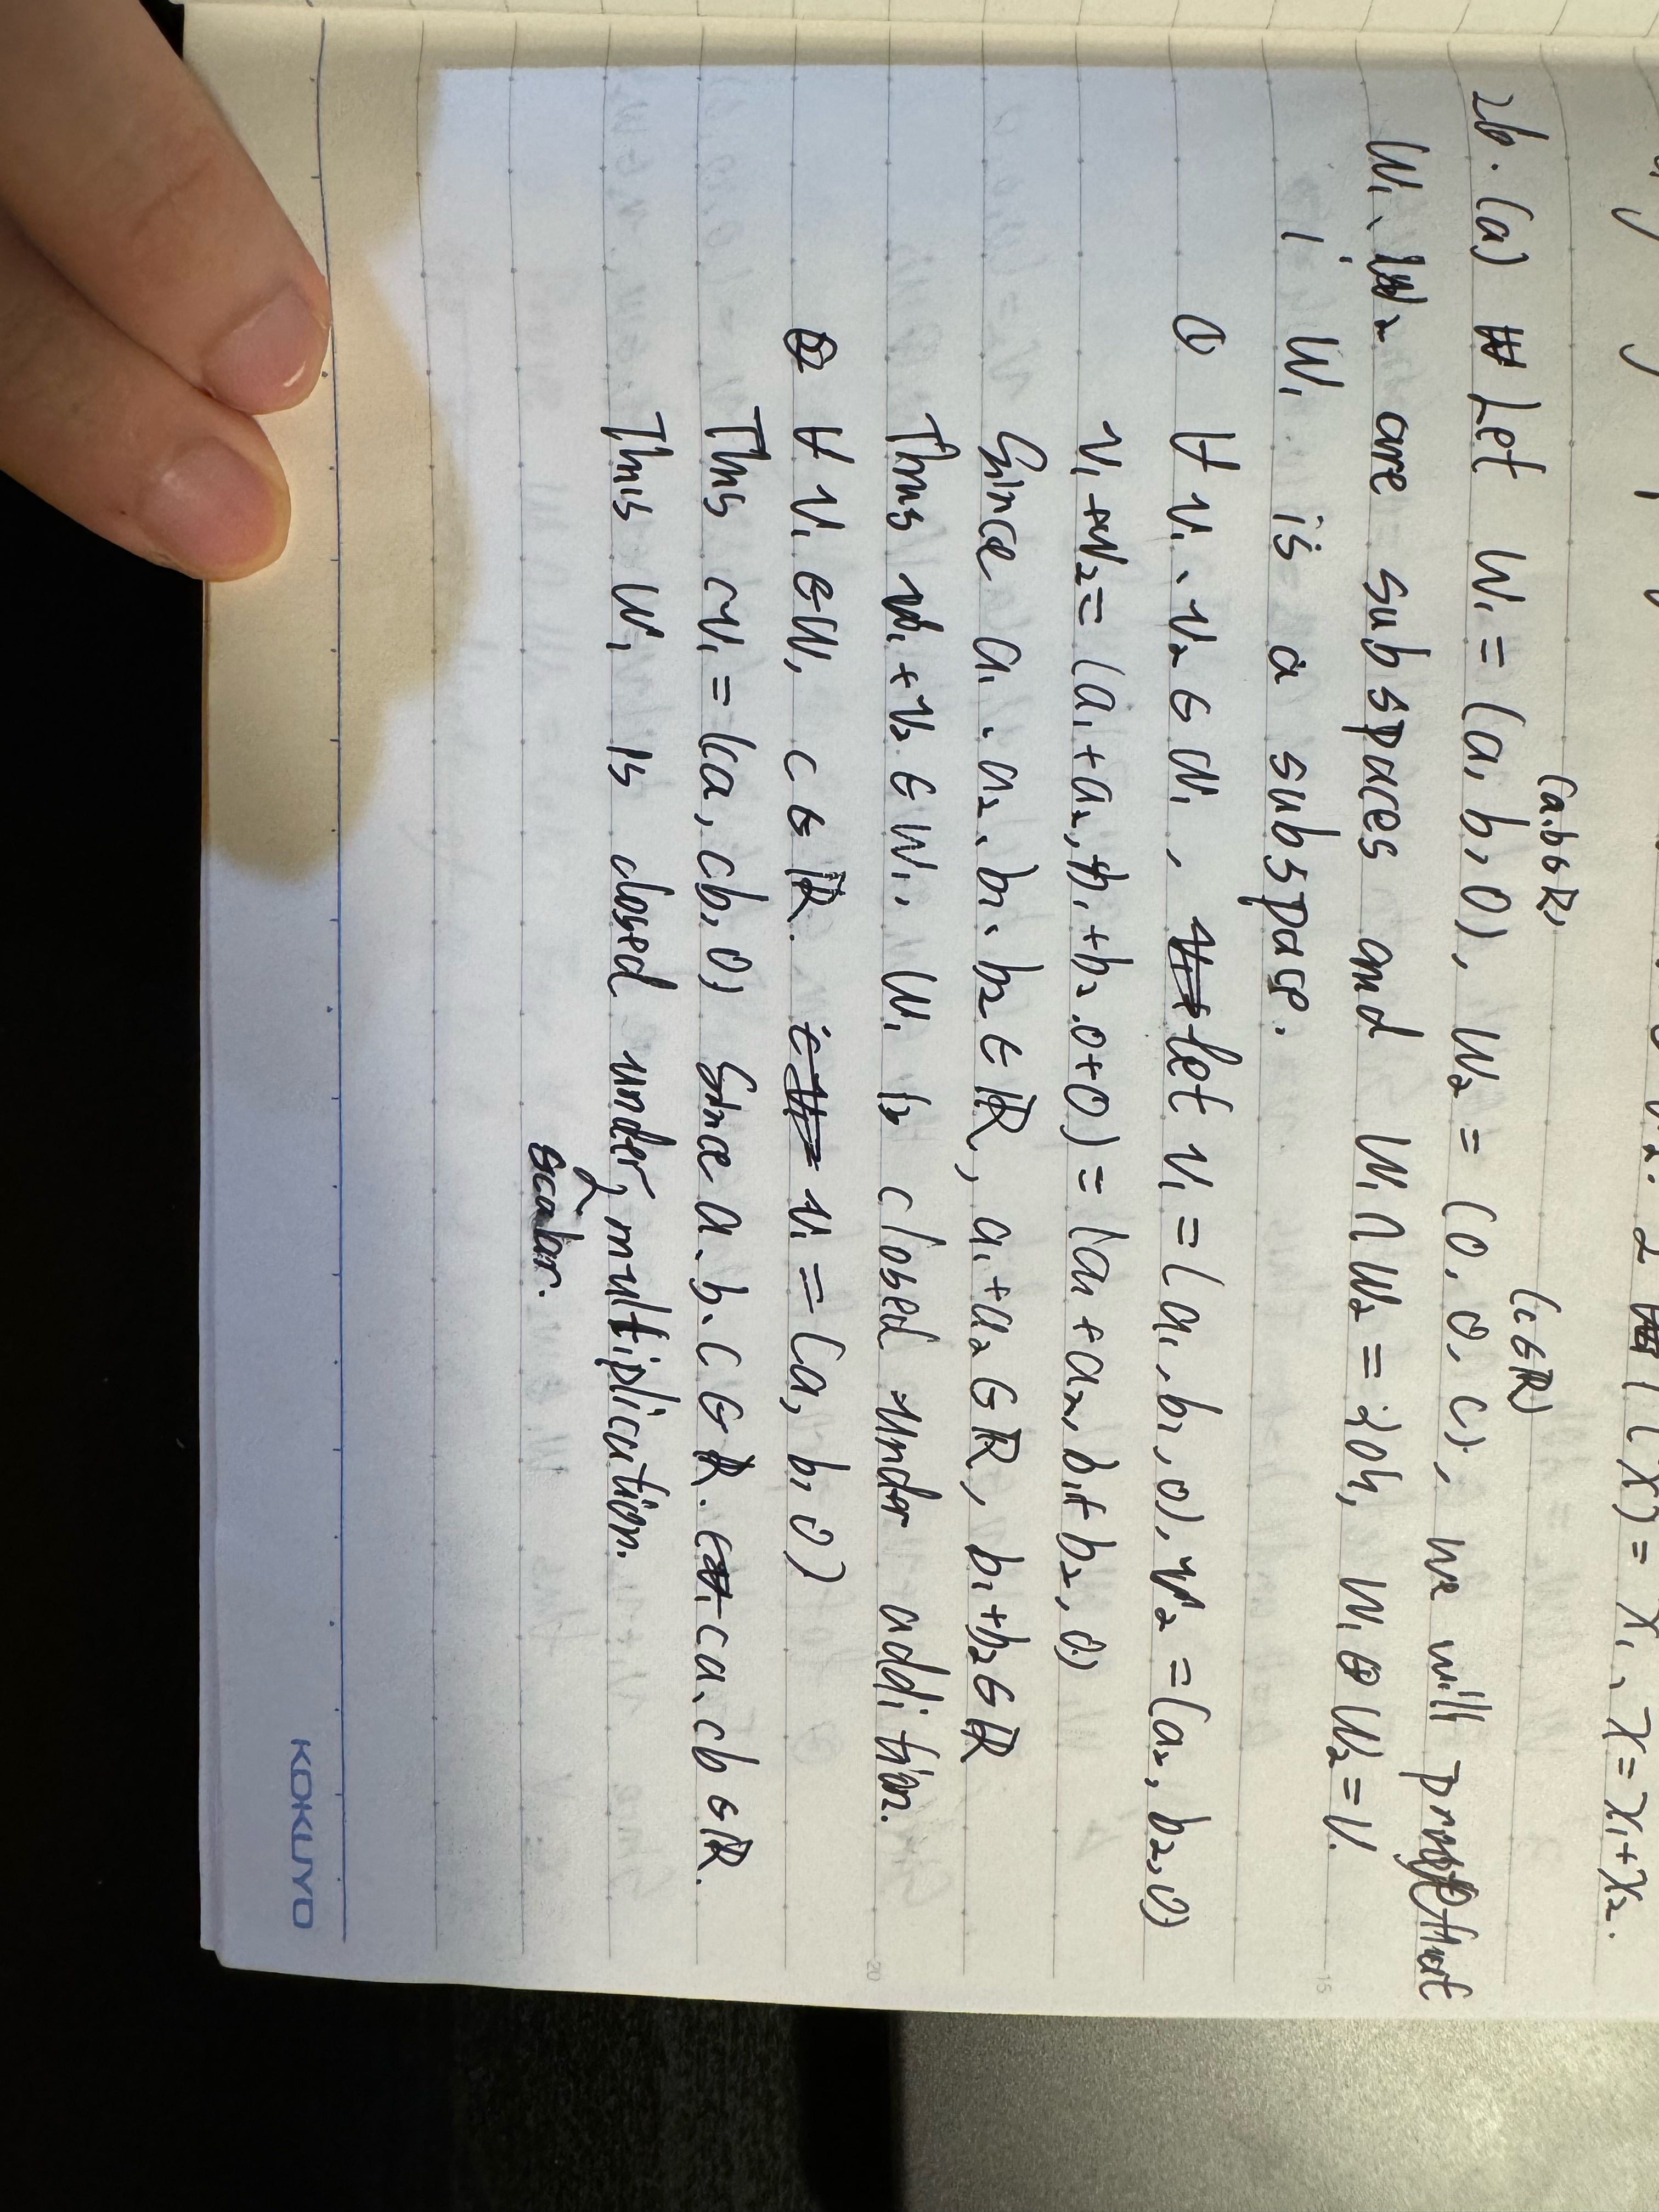 2 (x) = x₁、x = x₁+x₂.
(a.b∈R) (c∈R)
2b. (a) Let W₁ = (a, b, 0), W₂ = (0, 0, c), we will prove that
W₁、W₂ are subspaces and W₁∩W₂ = {0}, W₁⊕W₂ = V.
1, W₁ is a subspace.
① ∀ v₁、v₂ ∈ W₁, let v₁ = (a₁, b₁, 0), v₂ = (a₂, b₂, 0)
v₁+v₂ = (a₁+a₂, b₁+b₂, 0+0) = (a₁+a₂, b₁+b₂, 0)
Since a₁、a₂、b₁、b₂ ∈ R, a₁+a₂ ∈ R, b₁+b₂ ∈ R
Thus v₁+v₂ ∈ W₁, W₁ is closed under addition.
② ∀ v₁ ∈ W₁ c ∈ R. v₁ = (a, b, 0)
Thus cv₁ = (ca, cb, 0) Since a、b、c ∈ R. ca、cb ∈ R.
Thus W₁ is closed under multiplication.
scalar.
15
20
KOKUYO